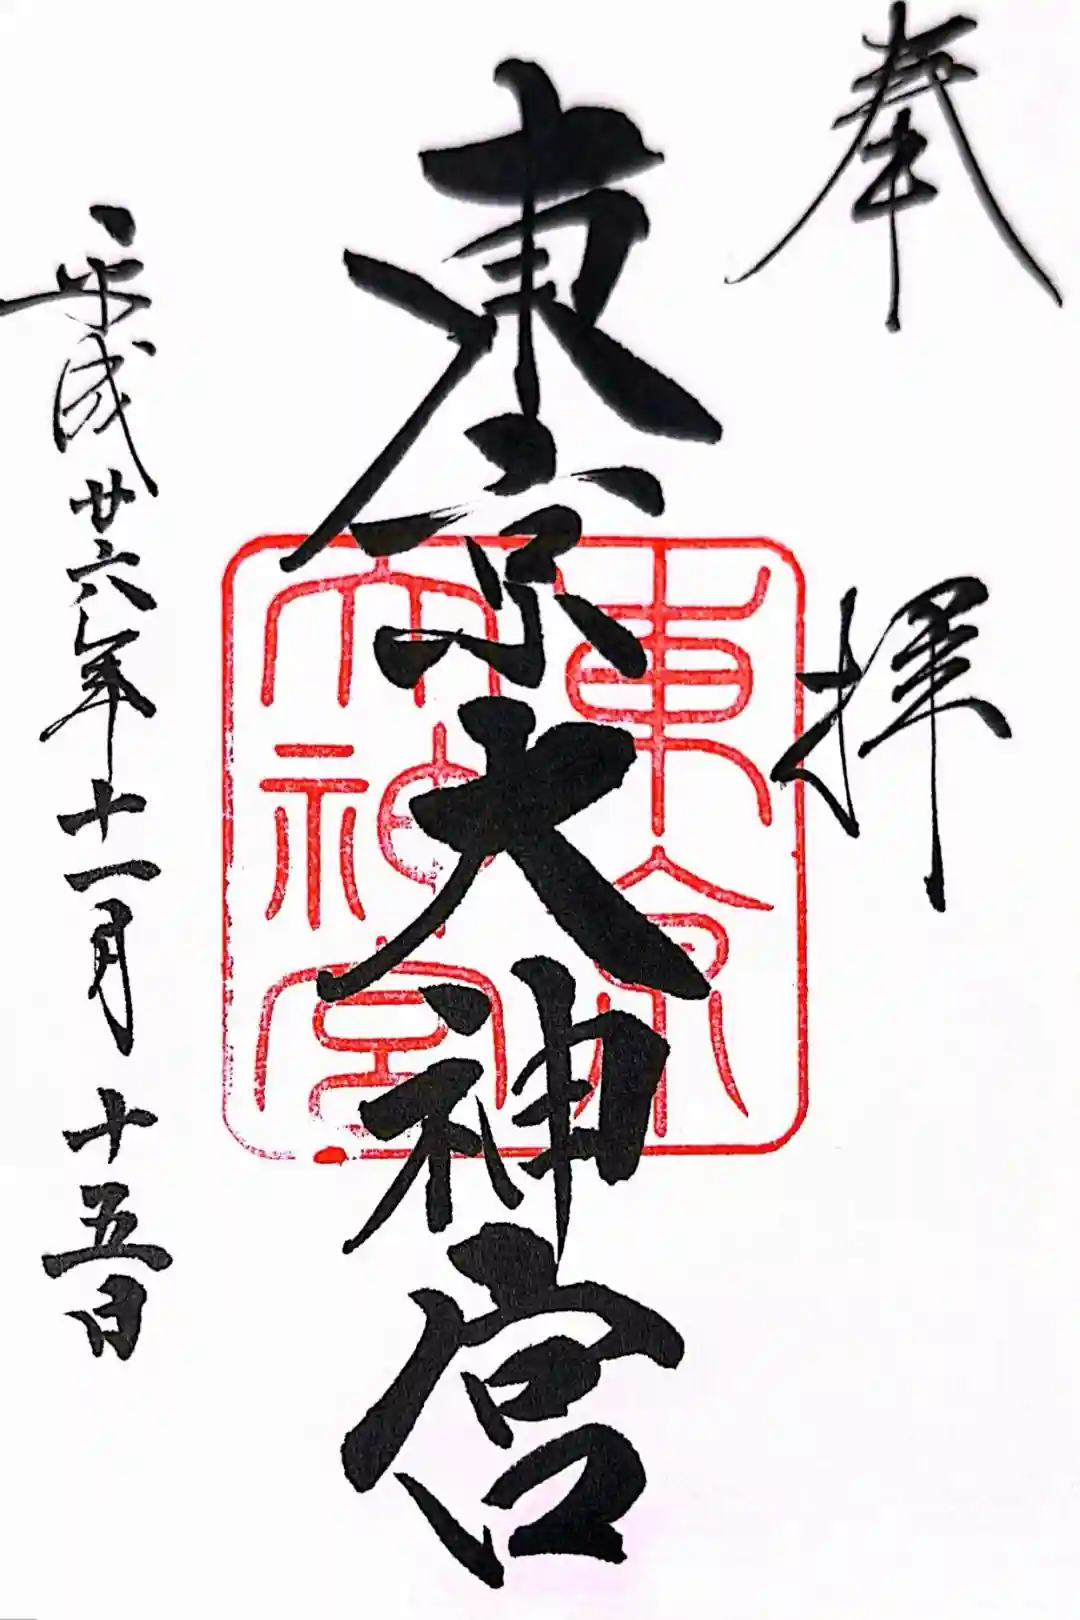 奉拝
東京大神宮
東京
大神宮
平成廿六年十一月十五日